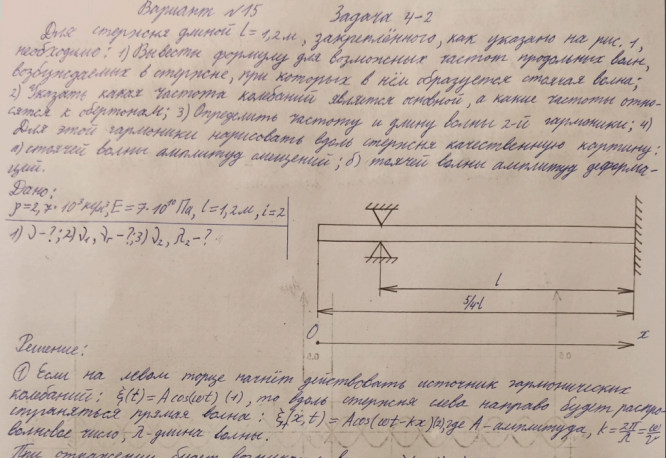 Вариант №15
Задача 4-2
Для стержня длиной l=1,2м, закреплённого, как указано на рис. 1,
необходимо: 1) Вывести формулу для возможных частот продольных волн,
возбуждаемых в стержне, при которых в нём образуется стоячая волна;
2) Указать какая частота колебаний является основной, а какие частоты отно-
сятся к обертонам; 3) Определить частоту и длину волны 2-й гармоники; 4)
Для этой гармоники нарисовать вдоль стержня качественную картину:
а) стоячей волны амплитуд смещений; б) стоячей волны амплитуд деформа-
ций.
Дано:
ρ=2,7·10³ кг/м³, E=7·10¹⁰ Па, l=1,2м, i=2
1) ν-?; 2) ν₁, νᵢ-?; 3) ν₂, λ₂-?
l
5/4 l
0
x
Решение:
① Если на левом торце начнёт действовать источник гармонических
колебаний: ξ(t)=Acos(ωt) (1), то вдоль стержня слева направо будет распро-
страняться прямая волна: ξ(x,t)=Acos(ωt-kx) (2), где A-амплитуда, k=2π/λ=ω/v
волновое число, λ-длина волны.
При отражении будет